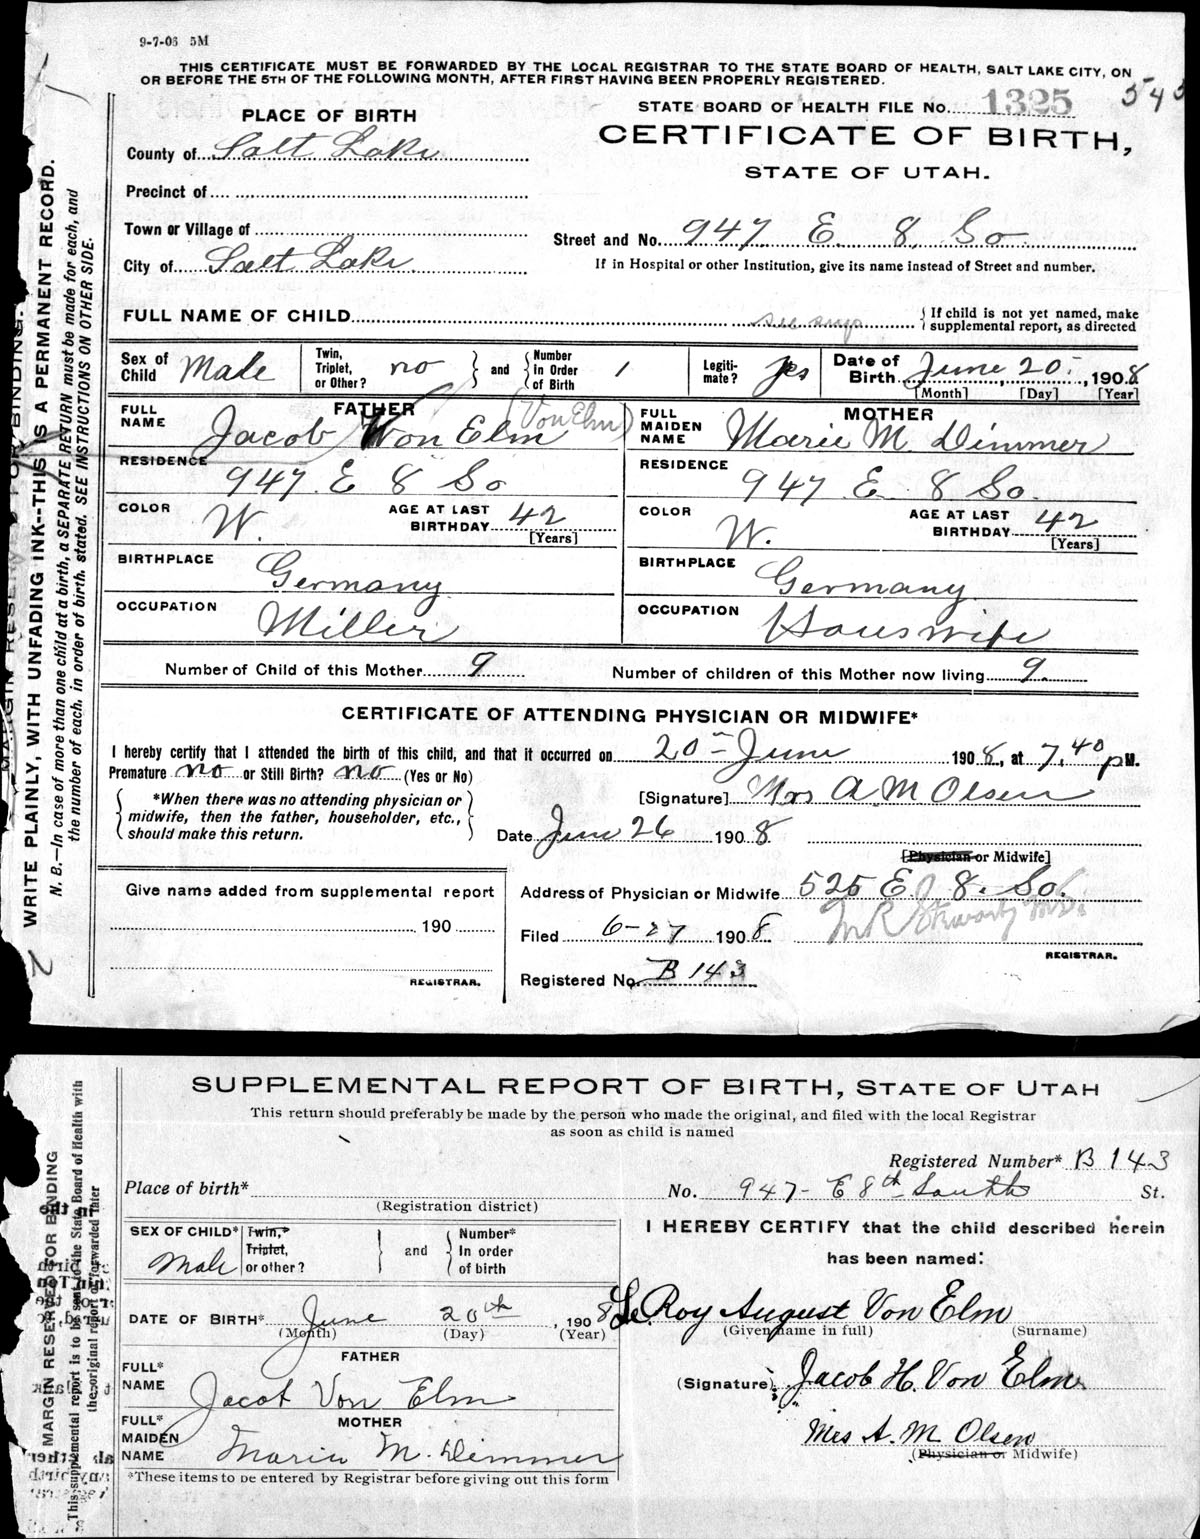 9-7-06 5M
THIS CERTIFICATE MUST BE FORWARDED BY THE LOCAL REGISTRAR TO THE STATE BOARD OF HEALTH, SALT LAKE CITY, ON
OR BEFORE THE 5TH OF THE FOLLOWING MONTH, AFTER FIRST HAVING BEEN PROPERLY REGISTERED.
STATE BOARD OF HEALTH FILE No. 1325
545
PLACE OF BIRTH
CERTIFICATE OF BIRTH,
STATE OF UTAH.
County of Salt Lake
Precinct of
Town or Village of
Street and No. 947 E. 8 So
City of Salt Lake
If in Hospital or other Institution, give its name instead of Street and number.
FULL NAME OF CHILD see sup
{ If child is not yet named, make
supplemental report, as directed
Sex of Child Male
Twin, Triplet, or Other? no
and
Number in Order of Birth 1
Legiti-mate? yes
Date of Birth June 20, 1908
[Month] [Day] [Year]
FATHER
FULL NAME Jacob Von Elm (Von Elm)
MOTHER
FULL MAIDEN NAME Marie M. Dimmer
RESIDENCE 947 E 8 So
RESIDENCE 947 E 8 So.
COLOR W. AGE AT LAST BIRTHDAY 42 [Years]
COLOR W. AGE AT LAST BIRTHDAY 42 [Years]
BIRTHPLACE Germany
BIRTHPLACE Germany
OCCUPATION Miller
OCCUPATION Houswife
Number of Child of this Mother 9
Number of children of this Mother now living 9.
CERTIFICATE OF ATTENDING PHYSICIAN OR MIDWIFE*
I hereby certify that I attended the birth of this child, and that it occurred on 20 June 1908, at 7.40 p M.
Premature no or Still Birth? no (Yes or No)
*When there was no attending physician or
midwife, then the father, householder, etc.,
should make this return.
[Signature] Mrs A M Olsen
Date June 26 1908
[Physician or Midwife]
Give name added from supplemental report
190
REGISTRAR.
Address of Physician or Midwife 525 E 8. So.
Filed 6-27 1908
REGISTRAR.
Registered No. B 143
MARGIN RESERVED FOR BINDING.
WRITE PLAINLY, WITH UNFADING INK--THIS IS A PERMANENT RECORD.
N. B.—In case of more than one child at a birth, a SEPARATE RETURN must be made for each, and
the number of each, in order of birth, stated. SEE INSTRUCTIONS ON OTHER SIDE.
2
SUPPLEMENTAL REPORT OF BIRTH, STATE OF UTAH
This return should preferably be made by the person who made the original, and filed with the local Registrar
as soon as child is named
Registered Number* B 143
Place of birth*
(Registration district)
No. 947- E 8th South St.
SEX OF CHILD* Male
Twin,* Triplet, or other?
and
Number* In order of birth
I HEREBY CERTIFY that the child described herein
has been named:
DATE OF BIRTH* June 20th, 1908
(Month) (Day) (Year)
Le Roy August Von Elm
(Given name in full) (Surname)
FATHER
FULL* NAME Jacob Von Elm
(Signature) Jacob H. Von Elm
MOTHER
FULL* MAIDEN NAME Maria M. Dimmer
Mrs A. M Olsen
(Physician or Midwife)
*These items to be entered by Registrar before giving out this form
MARGIN RESERVED FOR BINDING
This supplemental report is to be sent to the State Board of Health with
the original report or forwarded later